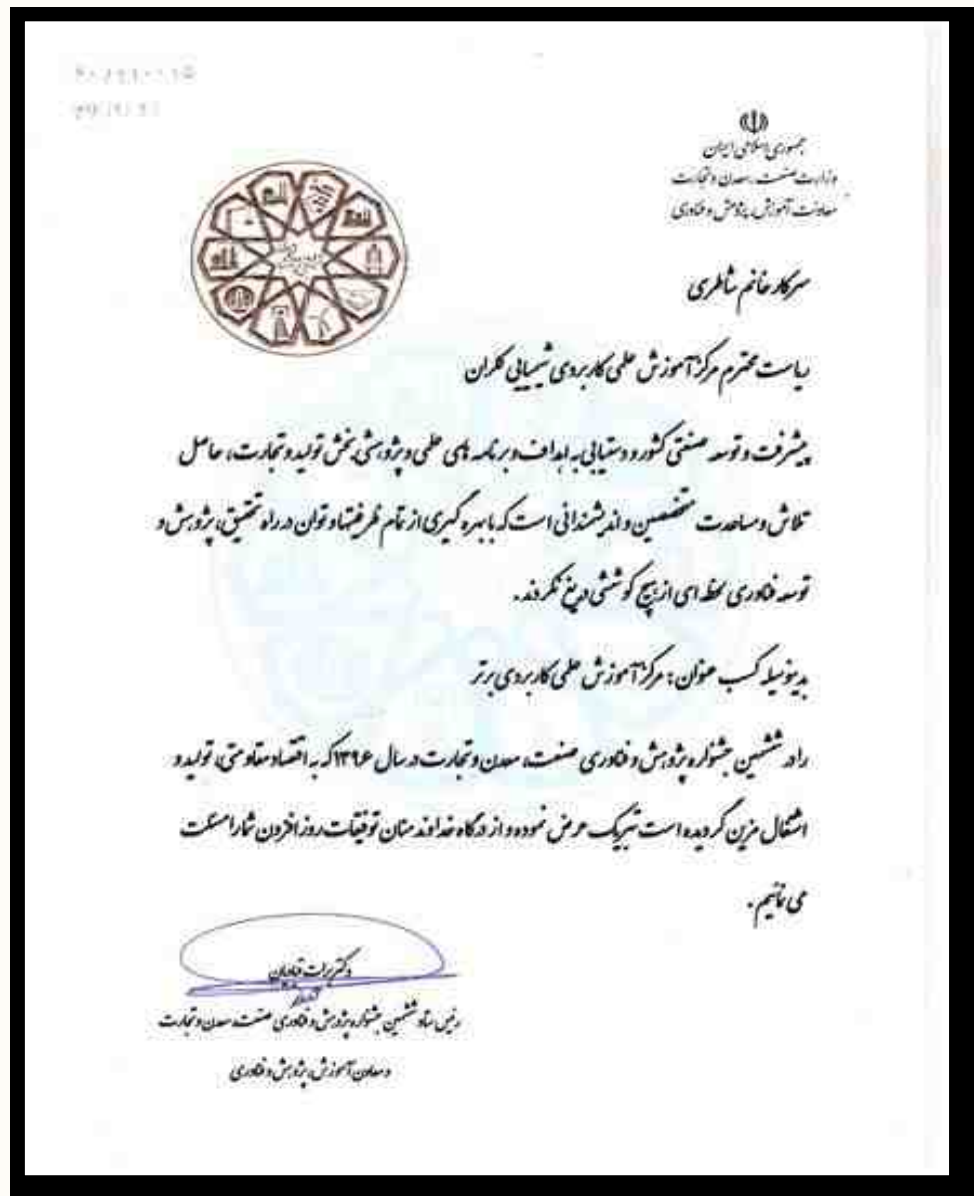 جمهوری اسلامی ایران
وزارت صنعت، معدن و تجارت
معاونت آموزش، پژوهش و فناوری
سرکار خانم شاطری
ریاست محترم مرکز آموزش علمی کاربردی شیمیایی کلران
پیشرفت و توسعه صنعتی کشور و دستیابی به اهداف و برنامه های علمی و پژوهشی بخش تولید و تجارت، حاصل
تلاش و مساعدت متخصصین و اندیشمندانی است که با بهره گیری از تمام ظرفیتها و توان در راه تحقیق، پژوهش و
توسعه فناوری لحظه ای از هیچ کوششی دریغ نکردند.
بدینوسیله کسب عنوان: مرکز آموزش علمی کاربردی برتر
را در ششمین جشنواره پژوهش و فناوری صنعت، معدن و تجارت در سال ۱۳۹۶ که به اقتصاد مقاومتی، تولید و
اشتغال مزین گردیده است تبریک عرض نموده و از درگاه خداوند منان توفیقات روز افزون شما را مسئلت
می نمائیم.
دکتر برات قنادیان
رئیس ستاد ششمین جشنواره پژوهش و فناوری صنعت، معدن و تجارت
و معاون آموزش، پژوهش و فناوری